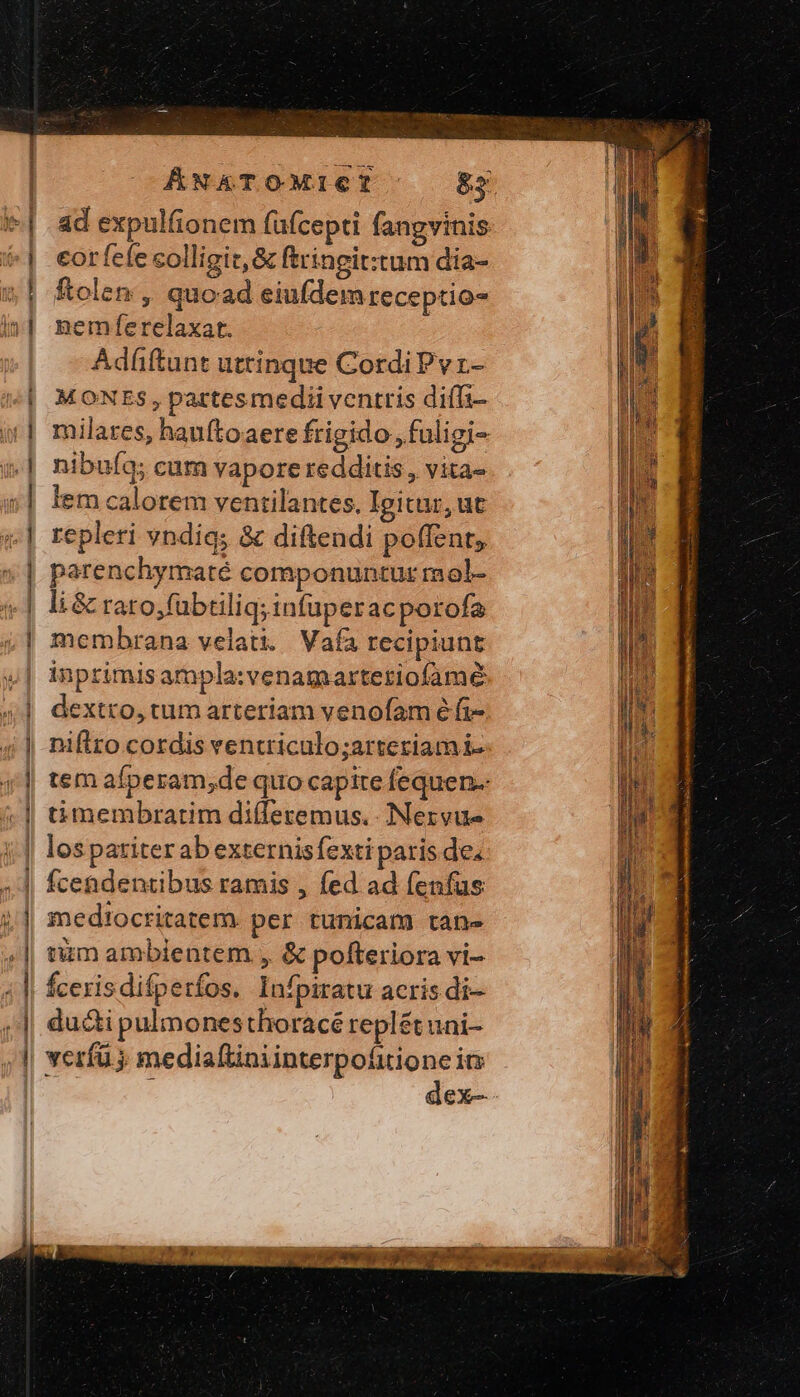 ANATOMICI 83
ad expulſionem ſuſcepti ſangvinis
cor ſeſe colligit, & ſtringit: tum dia-
ſtolen, quoad eiuſdem receptio-
nem ſe relaxat.
Adſiſtunt utrinque Cordi PVL-
MONES, partes medii ventris diſſi-
milares, hauſto aere frigido, fuligi-
nibuſq; cum vapore redditis, vita-
lem calorem ventilantes. Igitur, ut
repleri vndiq; & diſtendi poſſent,
parenchymatē componuntur mol-
li & raro, ſubtiliq; inſuper ac poroſa
membrana velati. Vaſa recipiunt
inprimis ampla: venam arterioſam ē
dextro, tum arteriam venoſam è ſi-
niſtro cordis ventriculo; arteriam i-
tem aſperam, de quo capite ſequen-
ti membratim diſſeremus. Nervu-
los pariter ab externis ſexti paris de-
ſcendentibus ramis, ſed ad ſenſus
mediocritatem per tunicam tan-
tùm ambientem, & poſteriora vi-
ſceris diſperſos. Inſpiratu aeris di-
ducti pulmones thoracē replēt uni-
verſū; mediaſtini interpoſitione in
dex-